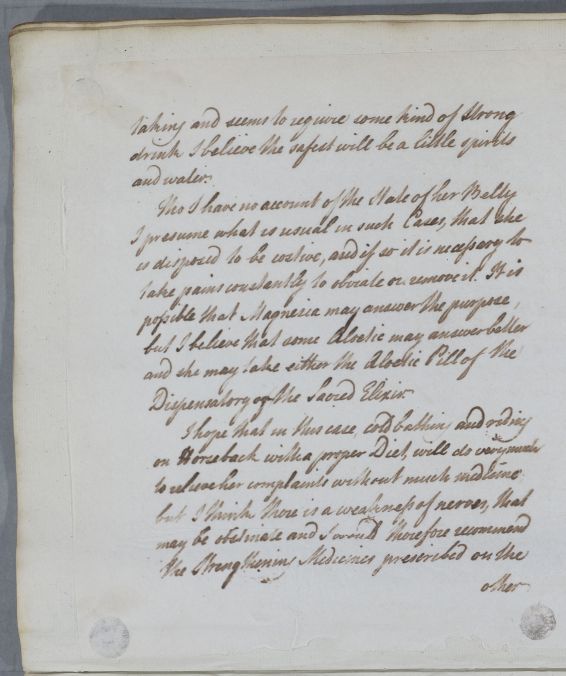 taking and seems to require some kind of Strong
drink I believe the safest will be a little spirits
and water.
Tho I have no account of the State of her Belly
I presume what is usual in such Cases, that she
is disposed to be costive, and if so it is necessary to
take pains constantly to obviate or remove it. It is
possible that Magnesia may answer the purpose,
but I believe that some Aloetic may answer better
and she may take either the Aloetic Pill of the
Dispensatory or the Sacred Elixir.
I hope that in this case, cold bathing and riding
on Horseback with a proper Diet, will do very much
to relieve her complaints without much medicine
but I think there is a weakness of nerves, that
may be obstinate and I would therefore recommend
the Strengthening Medicines prescribed on the
other